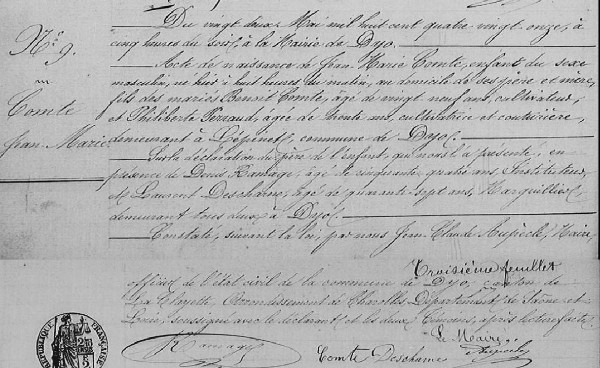 N° 9.
Comte
Jean Marie
Du vingt deux Mai mil huit cent quatre vingt onze, à
cinq heures du soir, à la Mairie de Dyo.
Acte de naissance de Jean Marie Comte, enfant du sexe
masculin, né hier à huit heures du matin, au domicile de ses père et mère,
fils des mariés Benoit Comte, âgé de vingt neuf ans, cultivateur,
et Philiberte, âgée de trente ans, cultivatrice et couturière,
demeurant à Lépinet, commune de Dyo.
Sur la déclaration du père de l'enfant, qui nous l'a présenté, en
présence de Ramage, âgé de cinquante quatre ans, Instituteur
et Laurent Deschamp, âgé de quarante sept ans, Marguillier
demeurant tous deux à Dyo.
Constaté, suivant la loi, par nous Jean Claude Aupecle, Maire,
Troisième feuillet
officier de l'état civil de la commune de Dyo, canton de
La Clayette, Arrondissement de Charolles, Département de Saône et
Loire, soussigné avec le déclarant et les deux témoins, après lecture faite.
Le Maire,
Ramage
Comte Deschamp
RÉPUBLIQUE FRANÇAISE